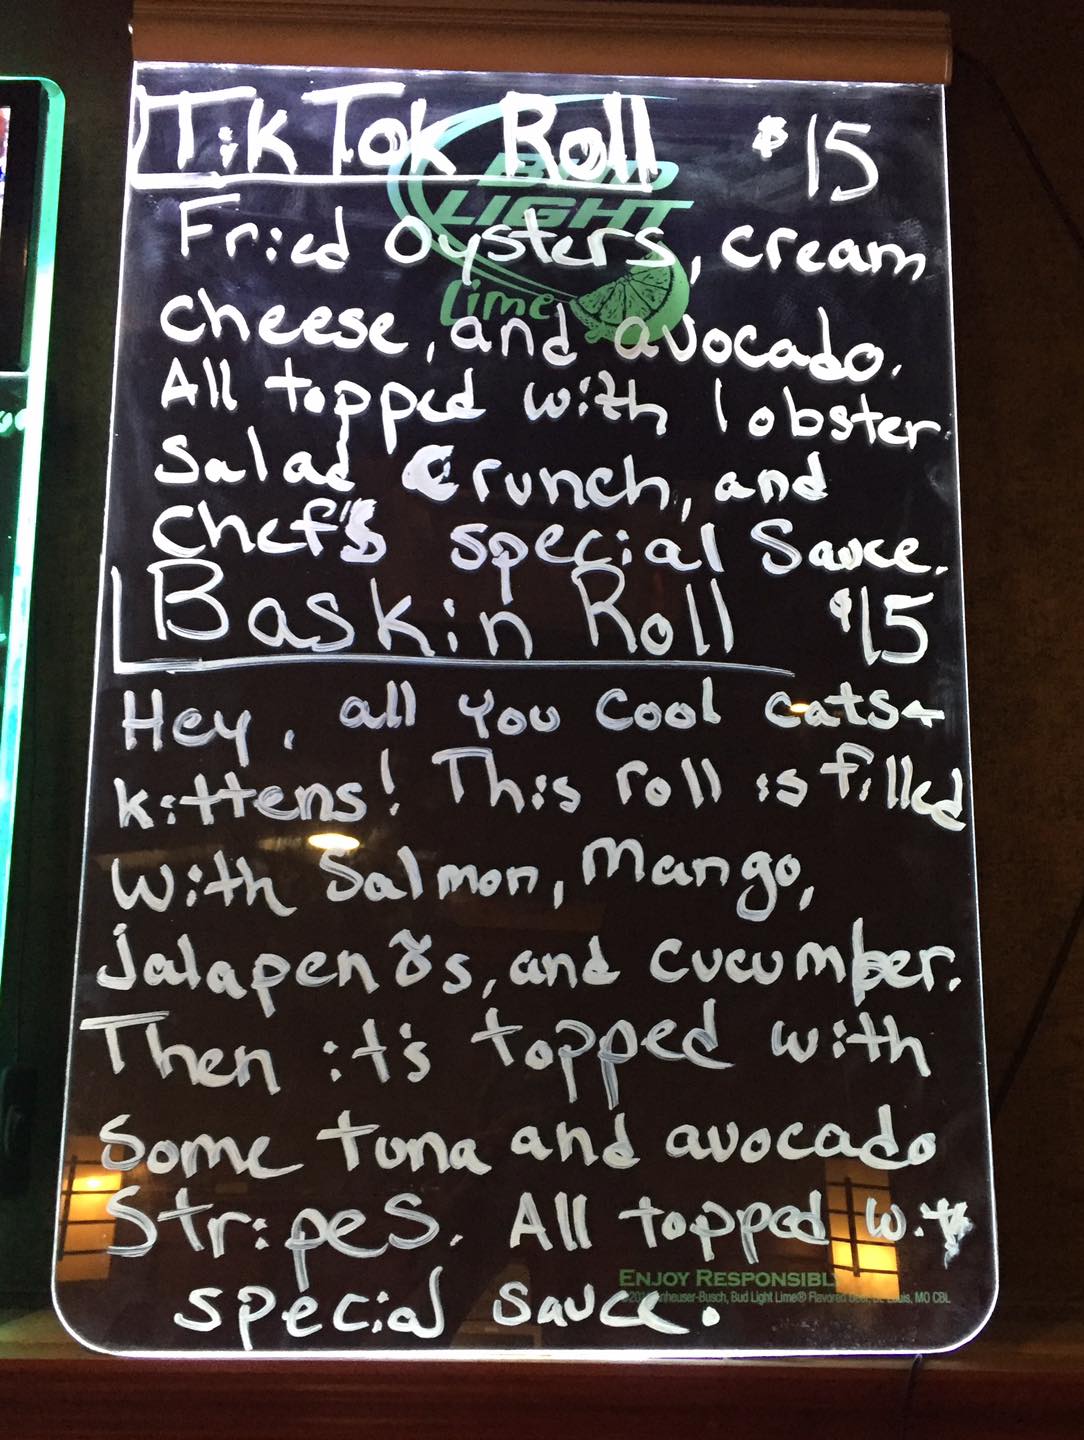 TikTok Roll $15
BUD
LIGHT
Lime
Fried Oysters, cream
cheese, and avocado.
All topped with lobster
Salad Crunch, and
Chef's special Sauce.
Baskin Roll $15
Hey, all you cool cats
kittens! This roll is filled
with Salmon, Mango,
jalapenos, and cucumber.
Then it's topped with
some tuna and avocado
Stripes. All topped with
special sauce.
ENJOY RESPONSIBLY
Anheuser-Busch, Bud Light Lime® Flavored Beer, St. Louis, MO CBL